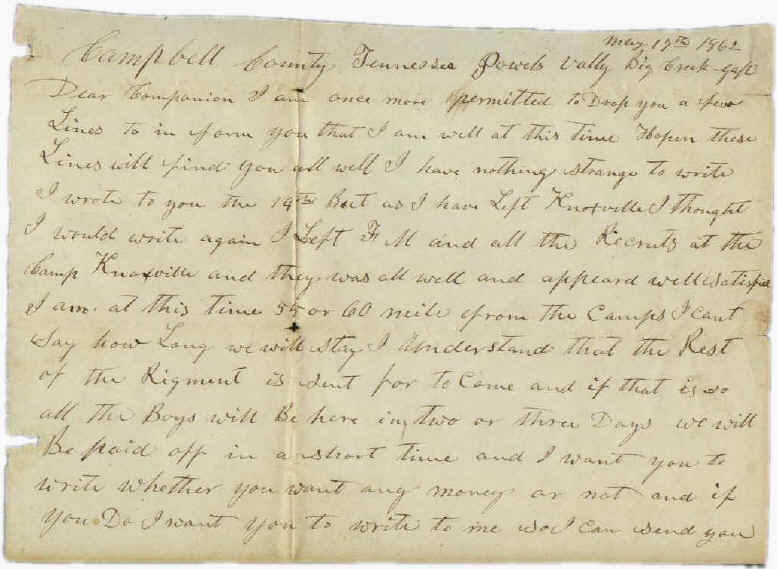 May 17th 1862
Campbell County Tennessee Powels Vally Big Creek gap
Dear Companion I am once more permitted to Drop you a few
Lines to in form you that I am well at this time Hopen these
Lines will find you all well I have nothing strange to write
I wrote to you the 14th But as I have Left Knoxville I thought
I would write again I Left F M and all the Recruts at the
Camp Knoxville and they was all well and appeard well satisfied
I am at this time 55 or 60 mile from the Camps I cant
Say how Long we will stay I understand that the Rest
of the Rigment is sent for to Come and if that is so
all the Boys will Be here in two or three Days we will
Be paid off in a short time and I want you to
write whether you want any money or not and if
you Do I want you to write to me so I can send you